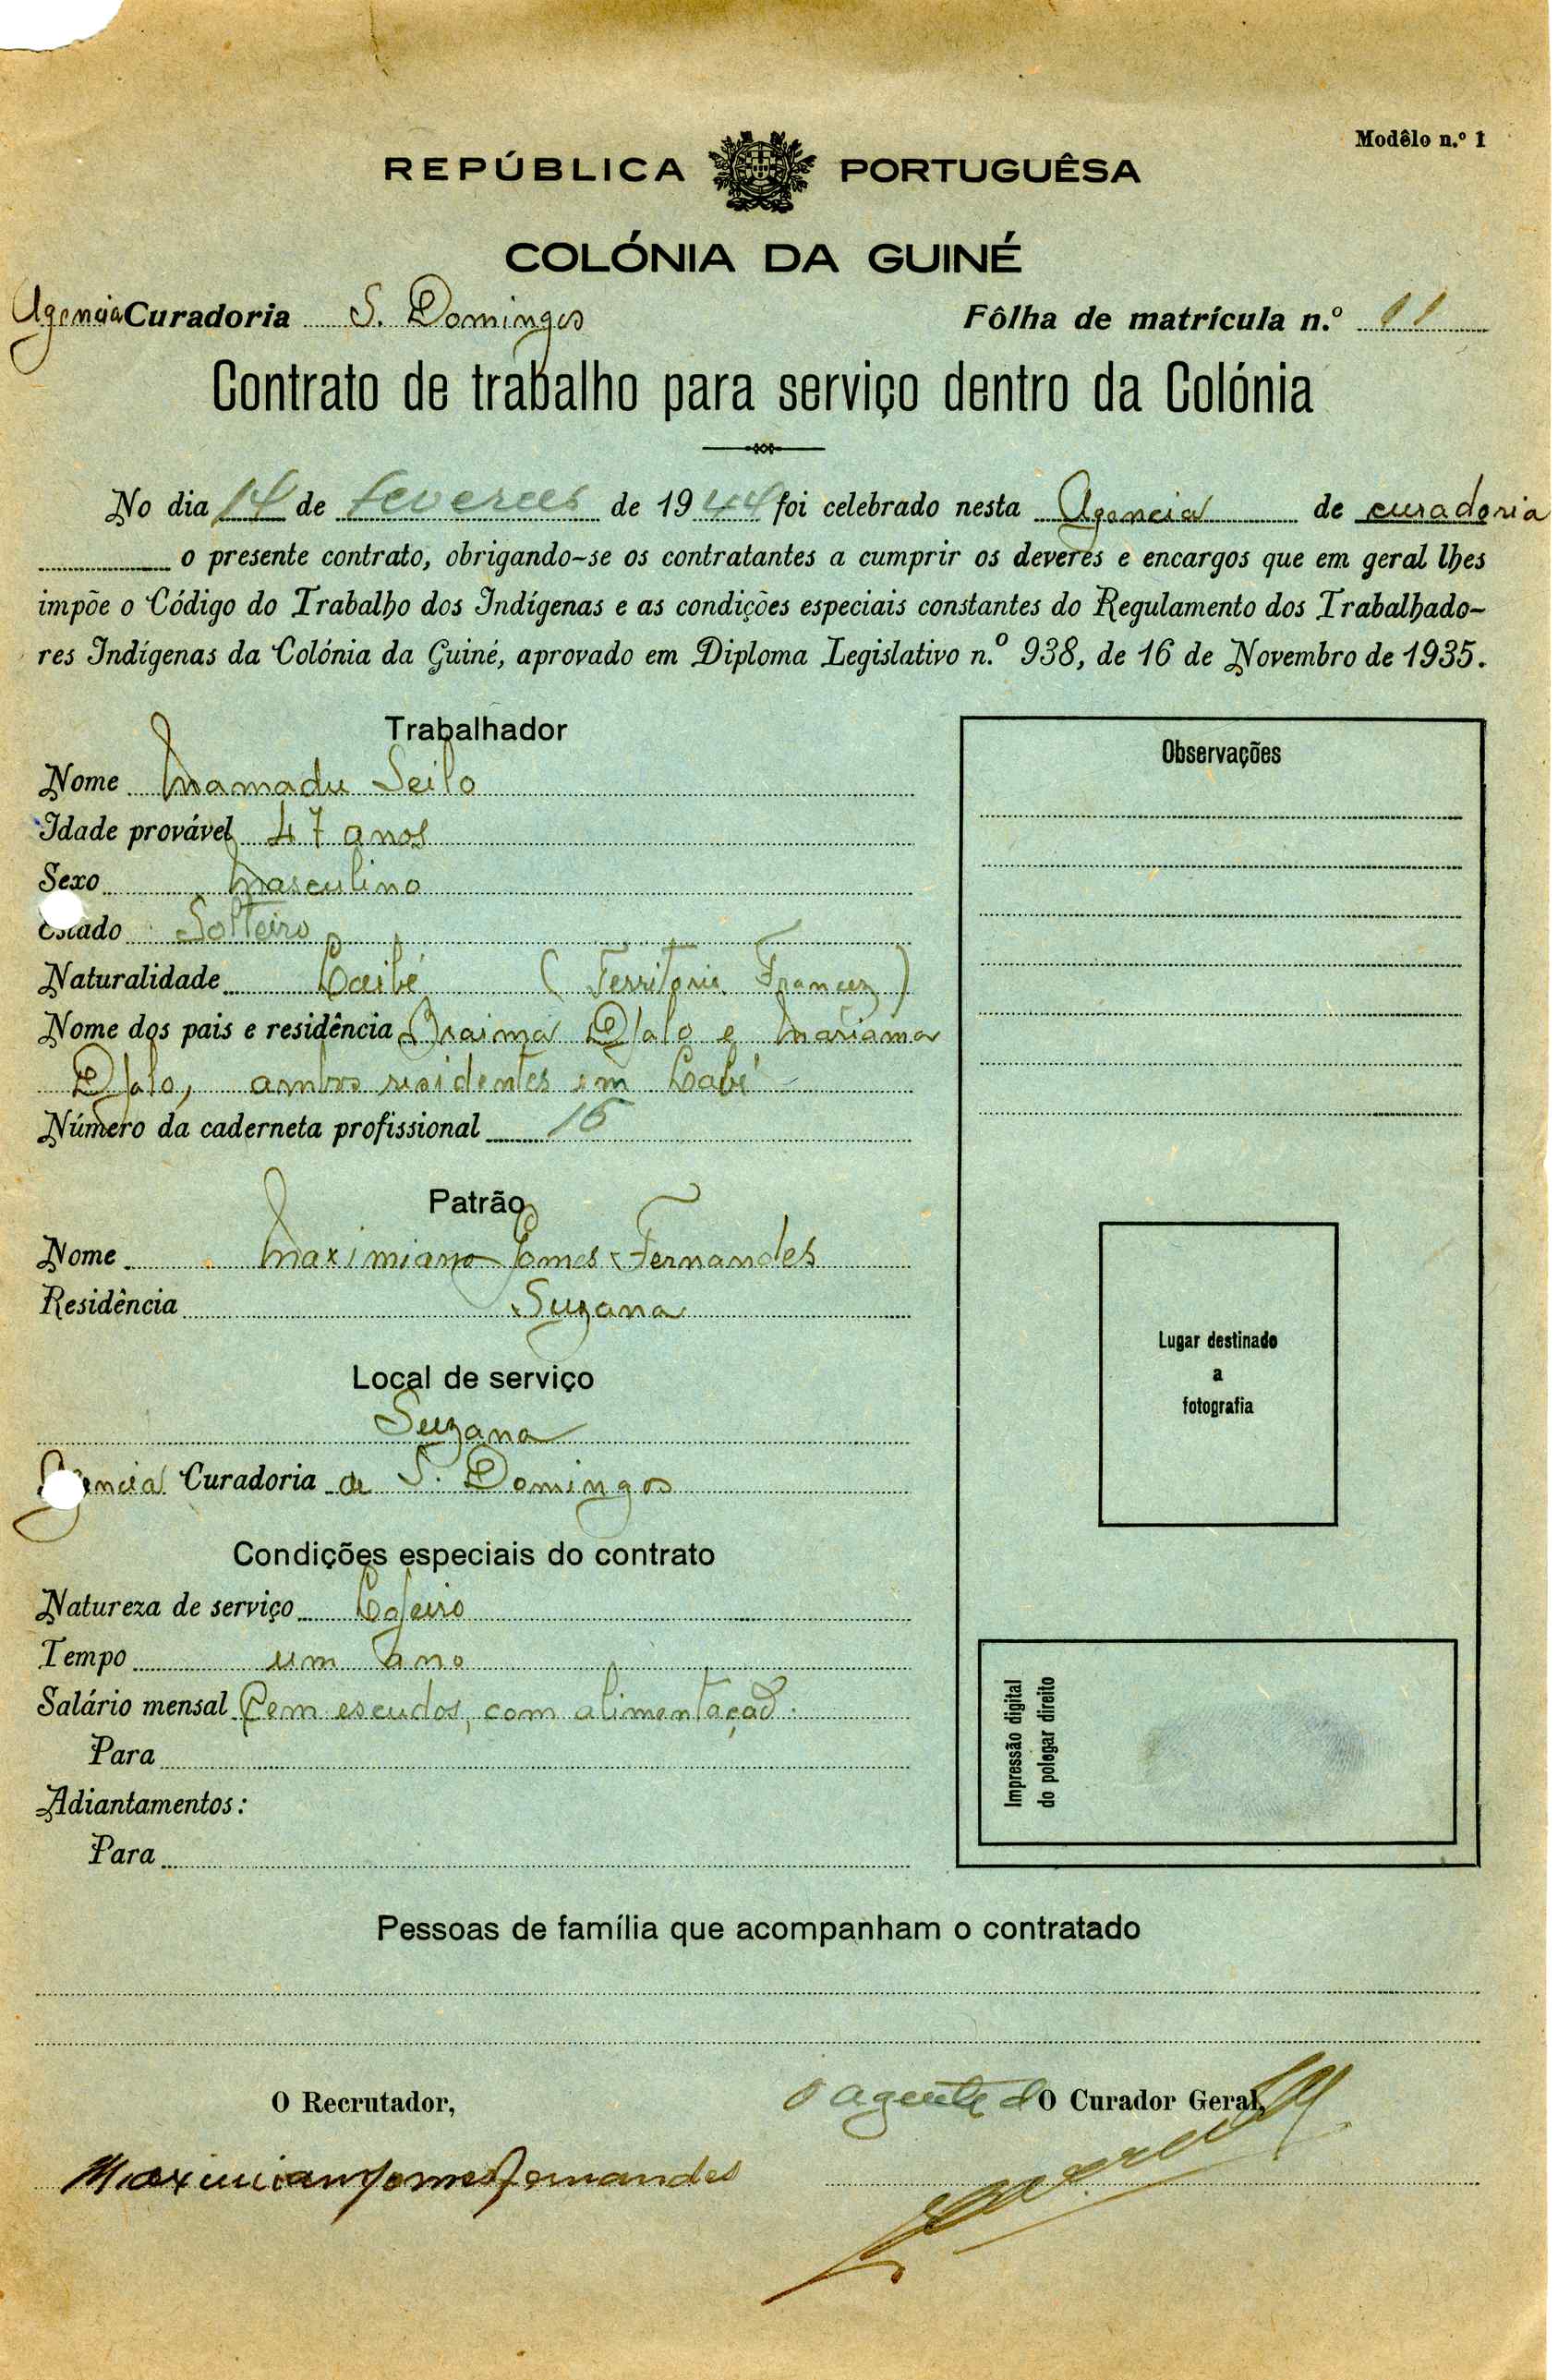 Modêlo n.º 1
REPÚBLICA PORTUGUÊSA
COLÓNIA DA GUINÉ
Agencia Curadoria S. Domingos Fôlha de matrícula n.º 11
Contrato de trabalho para serviço dentro da Colónia
No dia 14 de de 1944 foi celebrado nesta Agencia de curadoria
o presente contrato, obrigando-se os contratantes a cumprir os deveres e encargos que em geral lhes
impõe o Código do Trabalho dos Indígenas e as condições especiais constantes do Regulamento dos Trabalhado-
res Indígenas da Colónia da Guiné, aprovado em Diploma Legislativo n.º 938, de 16 de Novembro de 1935.
Trabalhador
Nome Mamadu Seilo
Idade provável 47 anos
Sexo Masculino
Estado Solteiro
Naturalidade (Territorio Francez)
Nome dos pais e residência Braima Djalo e Mariama
Djalo, ambos residentes em Labé
Número da caderneta profissional 15
Patrão
Nome Maximiano Gomes Fernandes
Residência Suzana
Local de serviço
Suzana
Agencia Curadoria de S. Domingos
Condições especiais do contrato
Natureza de serviço
Tempo um ano
Salário mensal Cem escudos, com alimentação.
Para
Adiantamentos:
Para
Observações
Lugar destinado
a
fotografia
Impressão digital
do polegar direito
Pessoas de família que acompanham o contratado
O Recrutador,
Maximiano Gomes Fernandes
O agente d O Curador Geral,